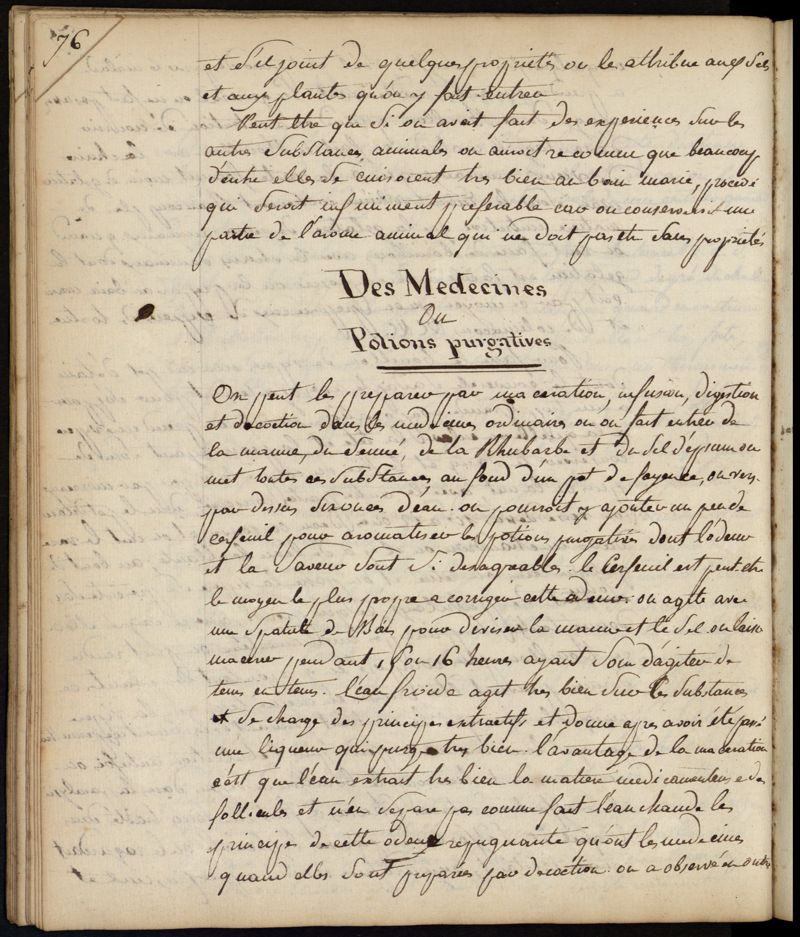 76
et s'il joint de quelques propriétés on les attribue aux sels
et aux plantes qu'on y fait entrer
Peut etre que si on avait fait des experiences sur les
autres substances animales on auroit reconnu que beaucoup
d'entre elles se cuisoient tres bien au bain marie, procedé
qui seroit infiniment preferable car on conserveroit une
partie de l'arome animal qui ne doit pas etre sans proprietés
Des Medecines
Ou
Potions purgatives
On peut les preparer par maceration, infusion, digestion
et decoction dans les medecines ordinaires ou on fait entrer de
la manne, du senné, de la Rhubarbe et du sel d'epsum on
met toutes ces substances au fond d'un pot de fayence, on verse
par dessus six onces d'eau. on pourroit y ajouter un peu de
cerfeuil pour aromatiser les potions purgatives dont l'odeur
et la saveur sont si desagreables. le Cerfeuil est peut etre
le moyen le plus propre a corriger cette odeur. on agite avec
une spatule de Bois pour diviser la manne et le sel on laisse
macerer pendant 15 ou 16 heures ayant soin d'agiter de
tems en tems. l'eau froide agit tres bien sur les substances
et se charge des principes extractifs et donne apres avoir été passé
une liqueur qui purge tres bien. l'avantage de la maceration
c'est que l'eau extrait tres bien la matiere medicamenteuse des
follicules et n'en separe pas comme fait l'eau chaude les
principes de cette odeur repugnante qu'ont les medecines
quand elles sont preparées par decoction. on a observé en outre